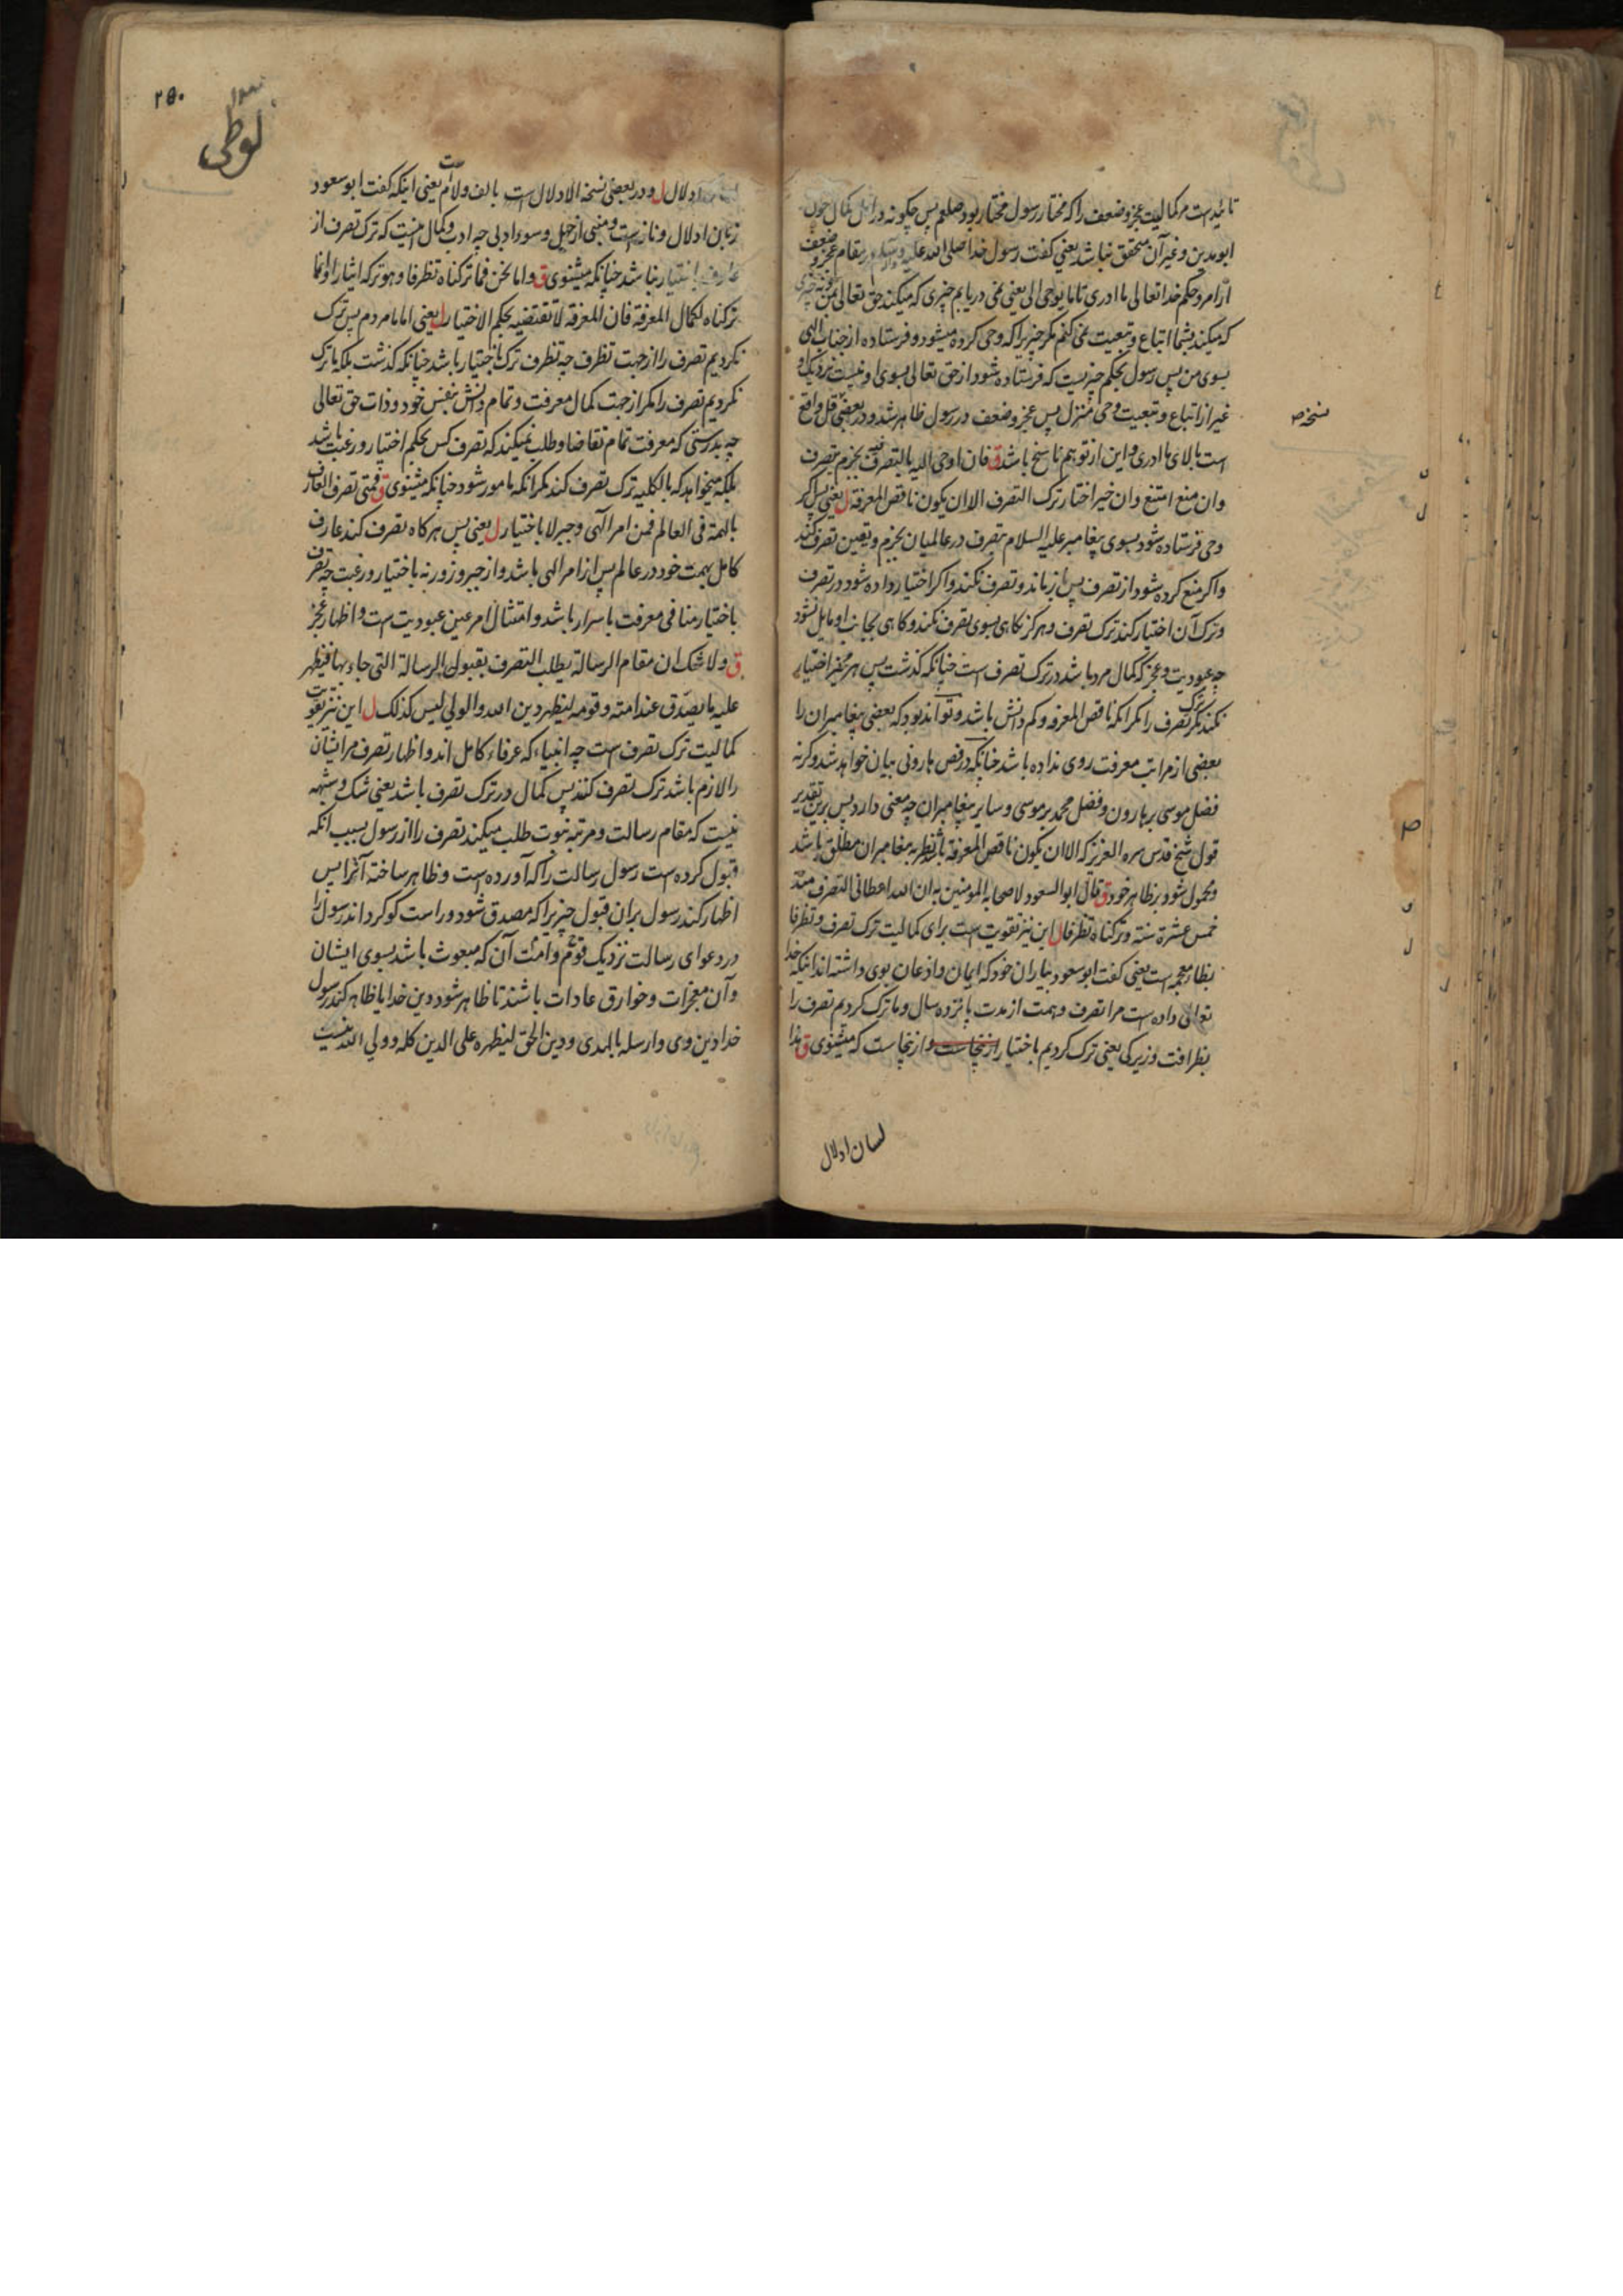 تائیدست مر کمالیت عجز و ضعف را که مختار رسول مختار بود صلعم پس چگونه در اهل کمال چون
ابو مدین و غیر آن متحقق نباشد یعنی کفت رسول خدا صلی الله علیه و آله وسلم در مقام عجز و ضعف
از امر و حکم خدا تعالی ما ادری تا ما یوحی الی یعنی نمی دریابم چیزی که میکند حق تعالی بمن
که میکند بشما اتباع و تبعیت نمی کنم مکر چیزیرا که وحی کرده میشود و فرستاده از جناب الهی
بسوی من پس رسول بحکم چیزیست که فرستاده شود از حق تعالی بسوی او نیست نزدیک او
غیر از اتباع و تبعیت وحی منزل پس عجز و ضعف در رسول ظاهر شد و در بعضی قل واقع
است بالای ما ادری و این از توهم ناسخ باشد ق فان اوحی الیه بالتصرف فیه بجزم تصرف
وان منع امتنع وان خیر اختار ترک التصرف الا ان یکون ناقص المعرفة ل یعنی پس اکر
وحی فرستاده شود بسوی پیغامبر علیه السلام بتصرف در عالمیان بجزم و یقین تصرف کند
واکر منع کرده شود از تصرف پس باز ماند و تصرف نکند واکر اختیار داده شود در تصرف
و ترک آن اختیار کند ترک تصرف و هرکز نکاهی بسوی تصرف نکند و کاهی بجانب او مایل نشود
چه عبودیت و عجز که کمال مرد باشد در ترک تصرف است چنانکه کذشت پس هر مخیر اختیار
نکند مکر ترک تصرف را مکر انکه ناقص المعرفه و کم دانش باشد و تواند بود که بعضی پیغامبران را
بعضی از مراتب معرفت روی نداده باشد چنانکه در فص هارونی بیان خواهد شد وکرنه
فضل موسی بر هارون و فضل محمد بر موسی و سایر پیغامبران چه معنی دارد پس برین تقدیر
قول شیخ قدس سره العزیز که الا ان یکون ناقص المعرفة با نظر به پیغامبران مطلق باشد
و محمول شود بر ظاهر خود ق قال ابو السعود لاصحابه المومنین به ان الله اعطانی التصرف منذ
خمس عشرة سنة و ترکناه تظرفا ل این نیز تقویت است برای کمالیت ترک تصرف و تظرفا
بظاء معجمه است یعنی کفت ابو سعود بیاران خود که ایمان و اذعان بوی داشته اند اینکه خدا
تعالی داده است مرا تصرف و همت از مدت پانزده سال و ما ترک کردیم تصرف را
بظرافت و زیرکی یعنی ترک کردیم باختیار ازینجاست و ازینجاست که مثنوی ق هذا
لسان ادلال
نسخه
۲۵۰
لوطی
ادلال ل و در بعضی نسخه الادلال است بالف و لام یعنی اینکه کفت ابو سعود
زبان ادلال و نازست و منبی از جهل و سوء ادبی چه ادب و کمال انیست که ترک تصرف از
عارف باختیار نباشد چنانکه میشنوی ق و اما نحن فما ترکناه تظرفا و هو ترکه ایثارا و انما
ترکناه لکمال المعرفة فان المعرفة لا تقتضیه بحکم الاختیار ل یعنی اما ما مردم پس ترک
نکردیم تصرف را از جهت تظرف چه تظرف ترک باختیار باشد چنانکه کذشت بلکه ما ترک
نکردیم تصرف را مکر از جهت کمال معرفت و تمام دانش بنفس خود و ذات حق تعالی
چه بدرستی که معرفت تمام تقاضا و طلب نمیکند که تصرف کس بحکم اختیار و رغبت باشد
بلکه میخواهد که بالکلیه ترک تصرف کند مکر انکه مامور شود چنانکه میشنوی ق فمتی تصرف العارف
بالهمة فی العالم فمن امر الهی و جبر لا باختیار ل یعنی پس هرکاه تصرف کند عارف
کامل بهمت خود در عالم پس از امر الهی باشد و از جبر و زور نه باختیار و رغبت چه تصرف
باختیار منافی معرفت باسرار باشد و امتثال امر عین عبودیت است و اظهار عجز
ق ولا شک ان مقام الرسالة یطلب التصرف بقبول الرسالة التی جاء بها فیظهر
علیه ما یصدق عند امته و قومه لیظهر دین الله و الولی لیس کذلک ل این نیز تقویت
کمالیت ترک تصرف است چه انبیاء که عرفاء کامل اند و اظهار تصرف مر ایشان
را لازم باشد ترک تصرف کنند پس کمال در ترک تصرف باشد یعنی شک و شبهه
نیست که مقام رسالت و مرتبه نبوت طلب میکند تصرف را از رسول بسبب انکه
قبول کرده است رسول رسالت را که آورده است و ظاهر ساخته آنرا پس
اظهار کند رسول بران قبول چیزیرا که مصدق شود و راست کو کرداند رسول را
در دعوای رسالت نزدیک قوم و امت آن که مبعوث باشد بسوی ایشان
و آن معجزات و خوارق عادات باشند تا ظاهر شود دین خدا یا ظاهر کند رسول
خدا دین وی و ارسله بالهدی و دین الحق لیظهره علی الدین کله و ولی الله نیست